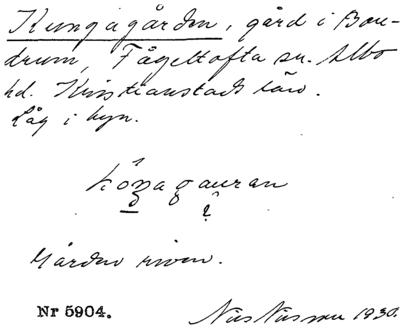 Kungagården, gård i Bon-
drum, Fågeltofta sn. Albo
hd. Kristianstads län.
Låg i byn.
Gården riven.
Nr 5904. Nils Nilsson 1930.